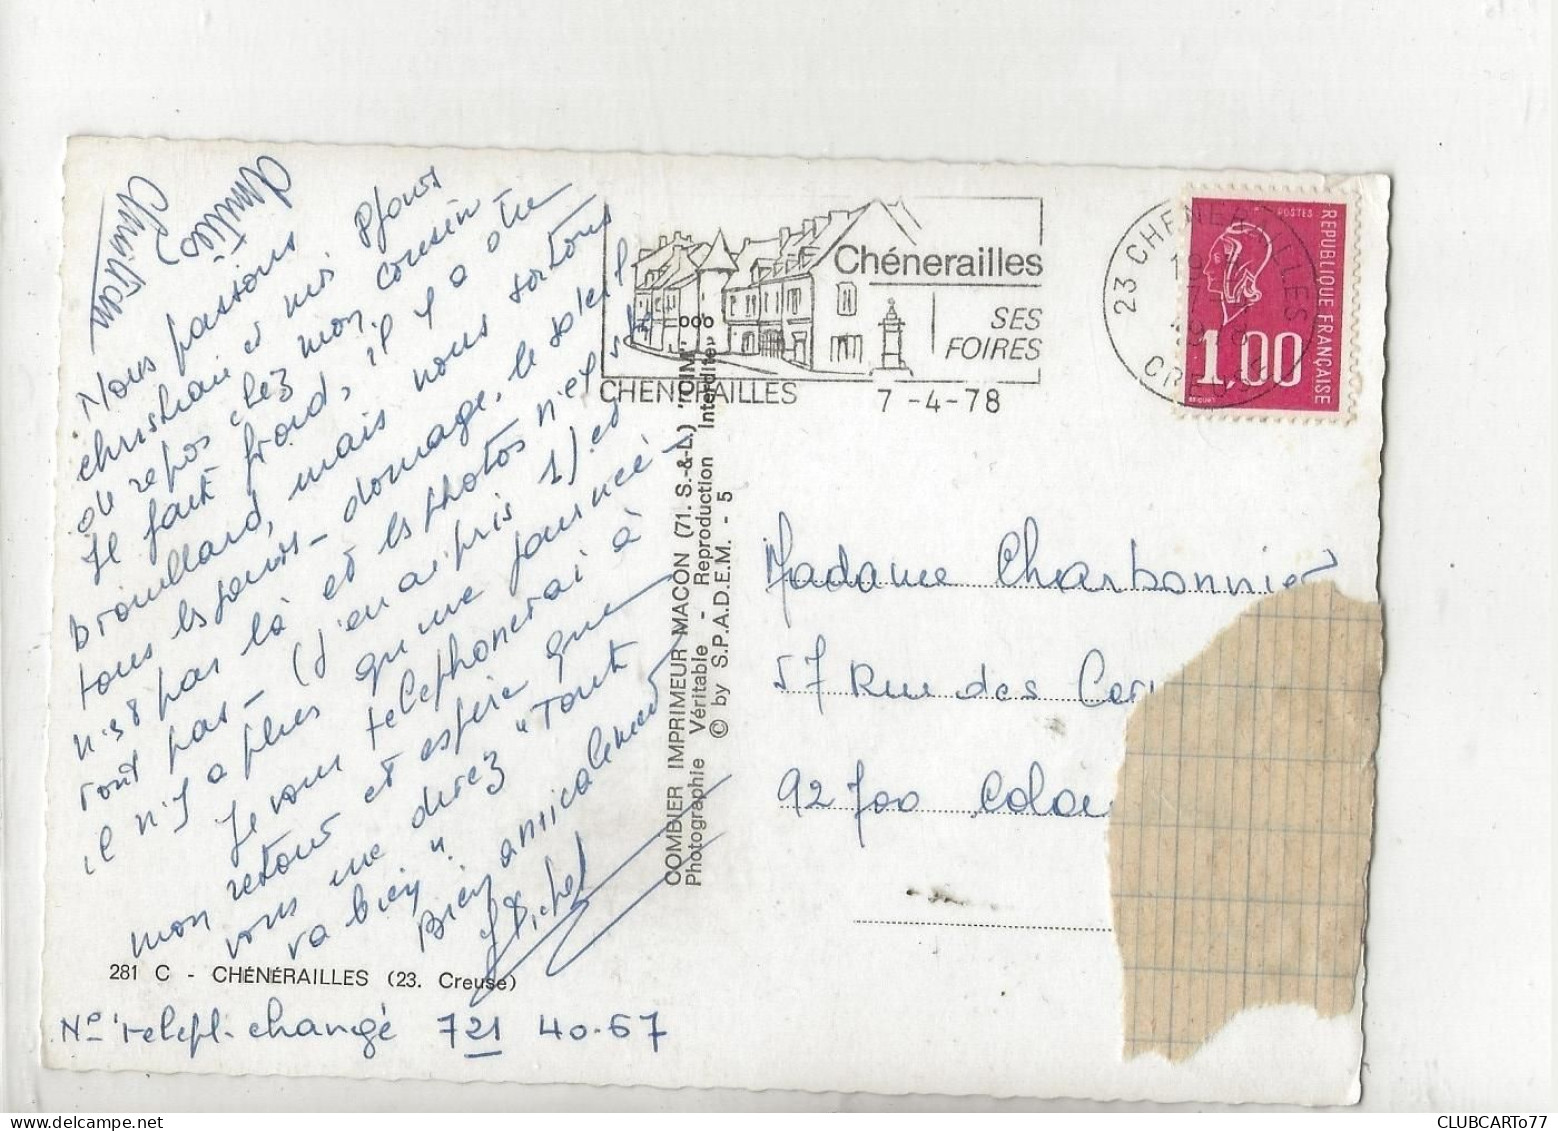 Amitiés
Christian
Nous passons
christian et moi 8 jours
de repos chez mon cousin
Il fait froid, il y a du
brouillard, mais nous sortons
tous les jours - domage, le soleil
n'est pas là et les photos n'el
ront pas - (j'en ai pris 1) et
il n'y a plus qu'une journée -
Je vous telephonerai à
mon retour et espère que
vous me direz "Tout
va bien".
Bien amicalement
Michel
281 C - CHÉNÉRAILLES (23. Creuse)
No telepl. changé 721 40.67
COMBIER IMPRIMEUR MACON (71. S.-&-L.) "CIM"
Photographie Véritable - Reproduction Interdite
© by S.P.A.D.E.M. - 5
Chénerailles
SES
FOIRES
CHENERAILLES 7-4-78
23 CHENERAILLES
CREUSE
POSTES
REPUBLIQUE FRANÇAISE
1,00
Madame Charbonnier
57 Rue des
92700 Colo
CLUBCARTO77